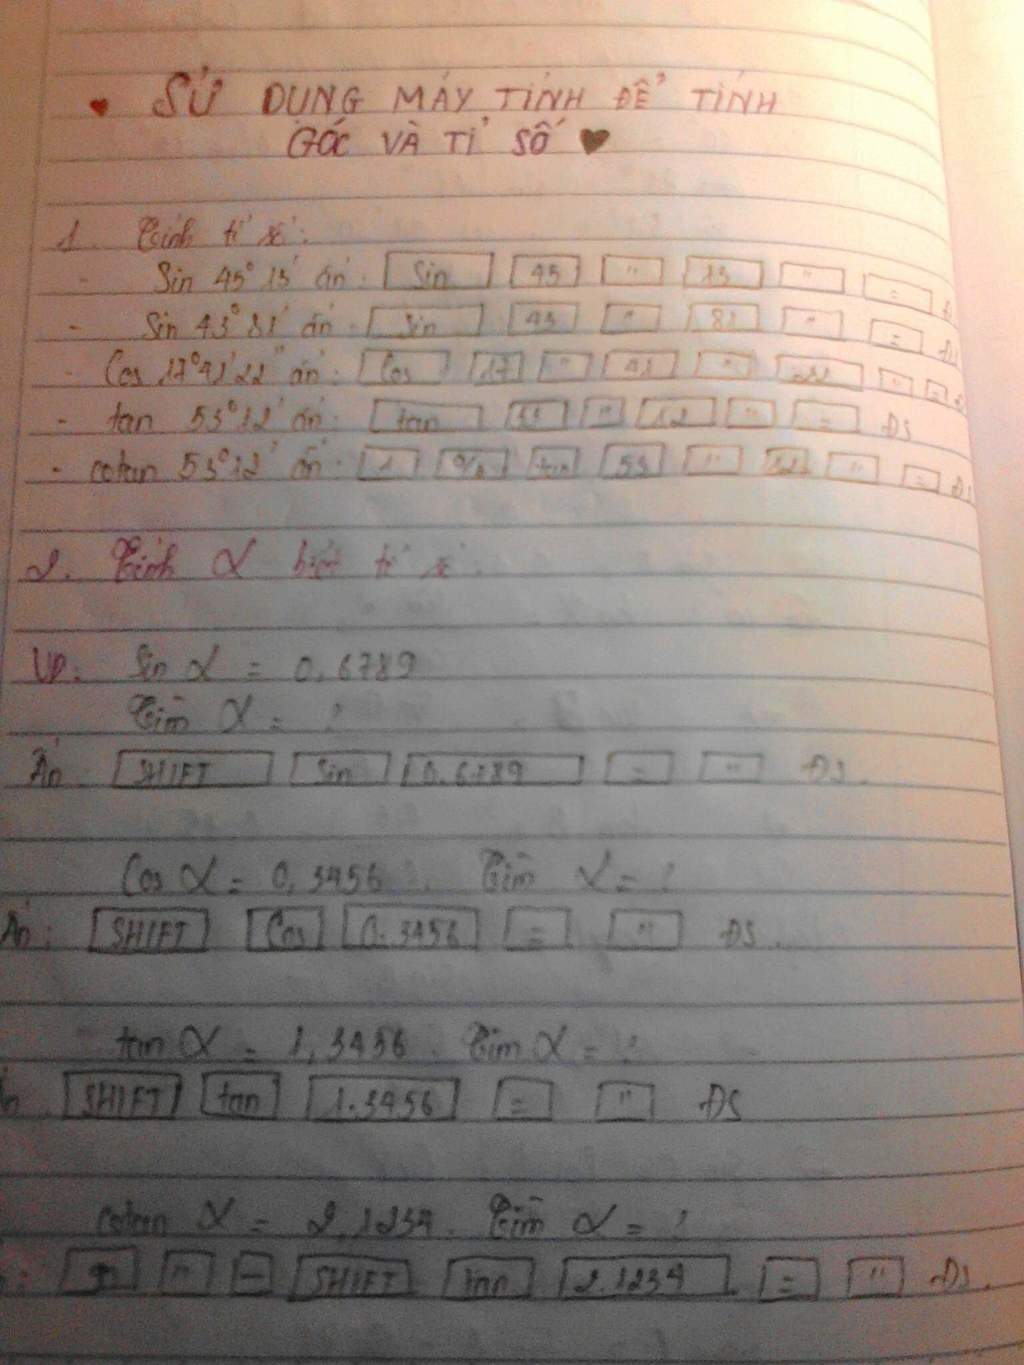 SỬ DỤNG MÁY TÍNH ĐỂ TÍNH
GÓC VÀ TỈ SỐ
1. Tính tỉ số:
- Sin 45° 15' ấn: Sin 45 " 15 " = ĐS
- Sin 43° 81' ấn: Sin 43 " 81 " = ĐS
- Cos 17° 41' 22" ấn: Cos 17 " 41 " 22 " =
- tan 53° 12' ấn: tan 53 " 12 " = ĐS
- cotan 53° 12' ấn: 1 tan 53 " 12 " = ĐS
2. Tính α biết tỉ số.
VD: Sin α = 0,6789
Tìm α = ?
Ấn: SHIFT Sin 0.6789 = " ĐS.
Cos α = 0,3456. Tìm α = ?
Ấn: SHIFT Cos 0.3456 = " ĐS.
tan α = 1,3456. Tìm α = ?
SHIFT tan 1.3456 = " ĐS
cotan α = 2,1234. Tìm α = ?
" - SHIFT tan 2.1234 = " ĐS.